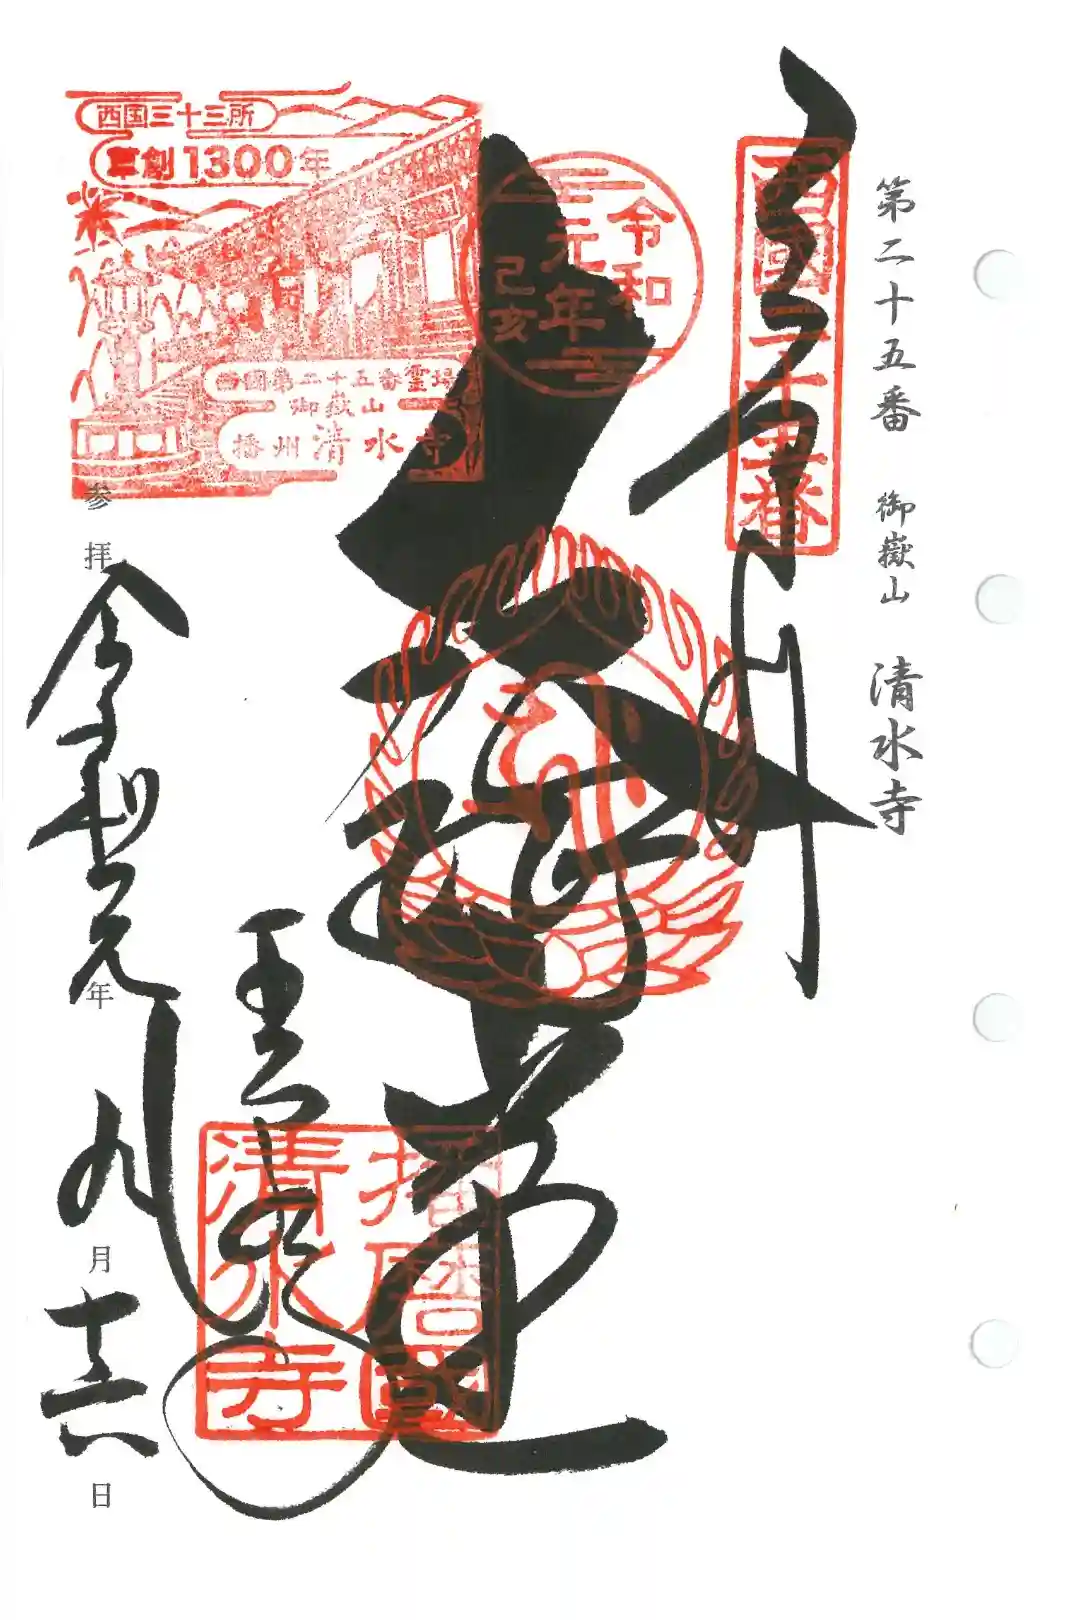 第二十五番 御嶽山 清水寺
西國二十五番
奉拝
大悲殿
令和
元年
己亥
西国三十三所
草創1300年
西國第二十五番霊場
御嶽山
播州清水寺
播磨國
清水寺
参拝 令和元年九月十六日